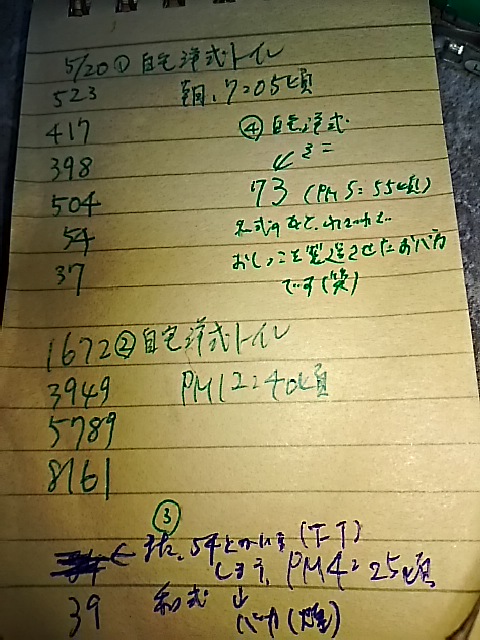 5/20 ① 自宅洋式トイレ
523 朝、7:05頃
417
398
504
54
37
④ 自宅洋式
↙ ミニ
73 (PM5:55頃)
おしっこを製造させたおバカ
です(笑)
1672 ② 自宅洋式トイレ
3949 PM12:40頃
5789
8161
③
← また、54とか (T_T)
します、PM4:25頃
39 和式 ↓
バカ(爆)